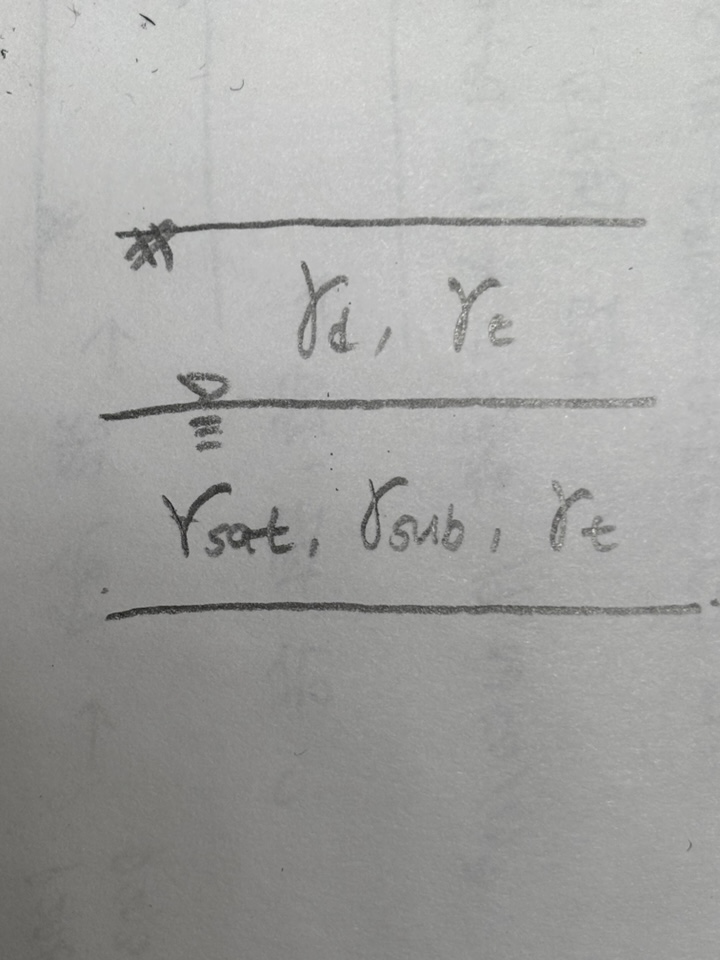 γd, γt
γsat, γsub, γt